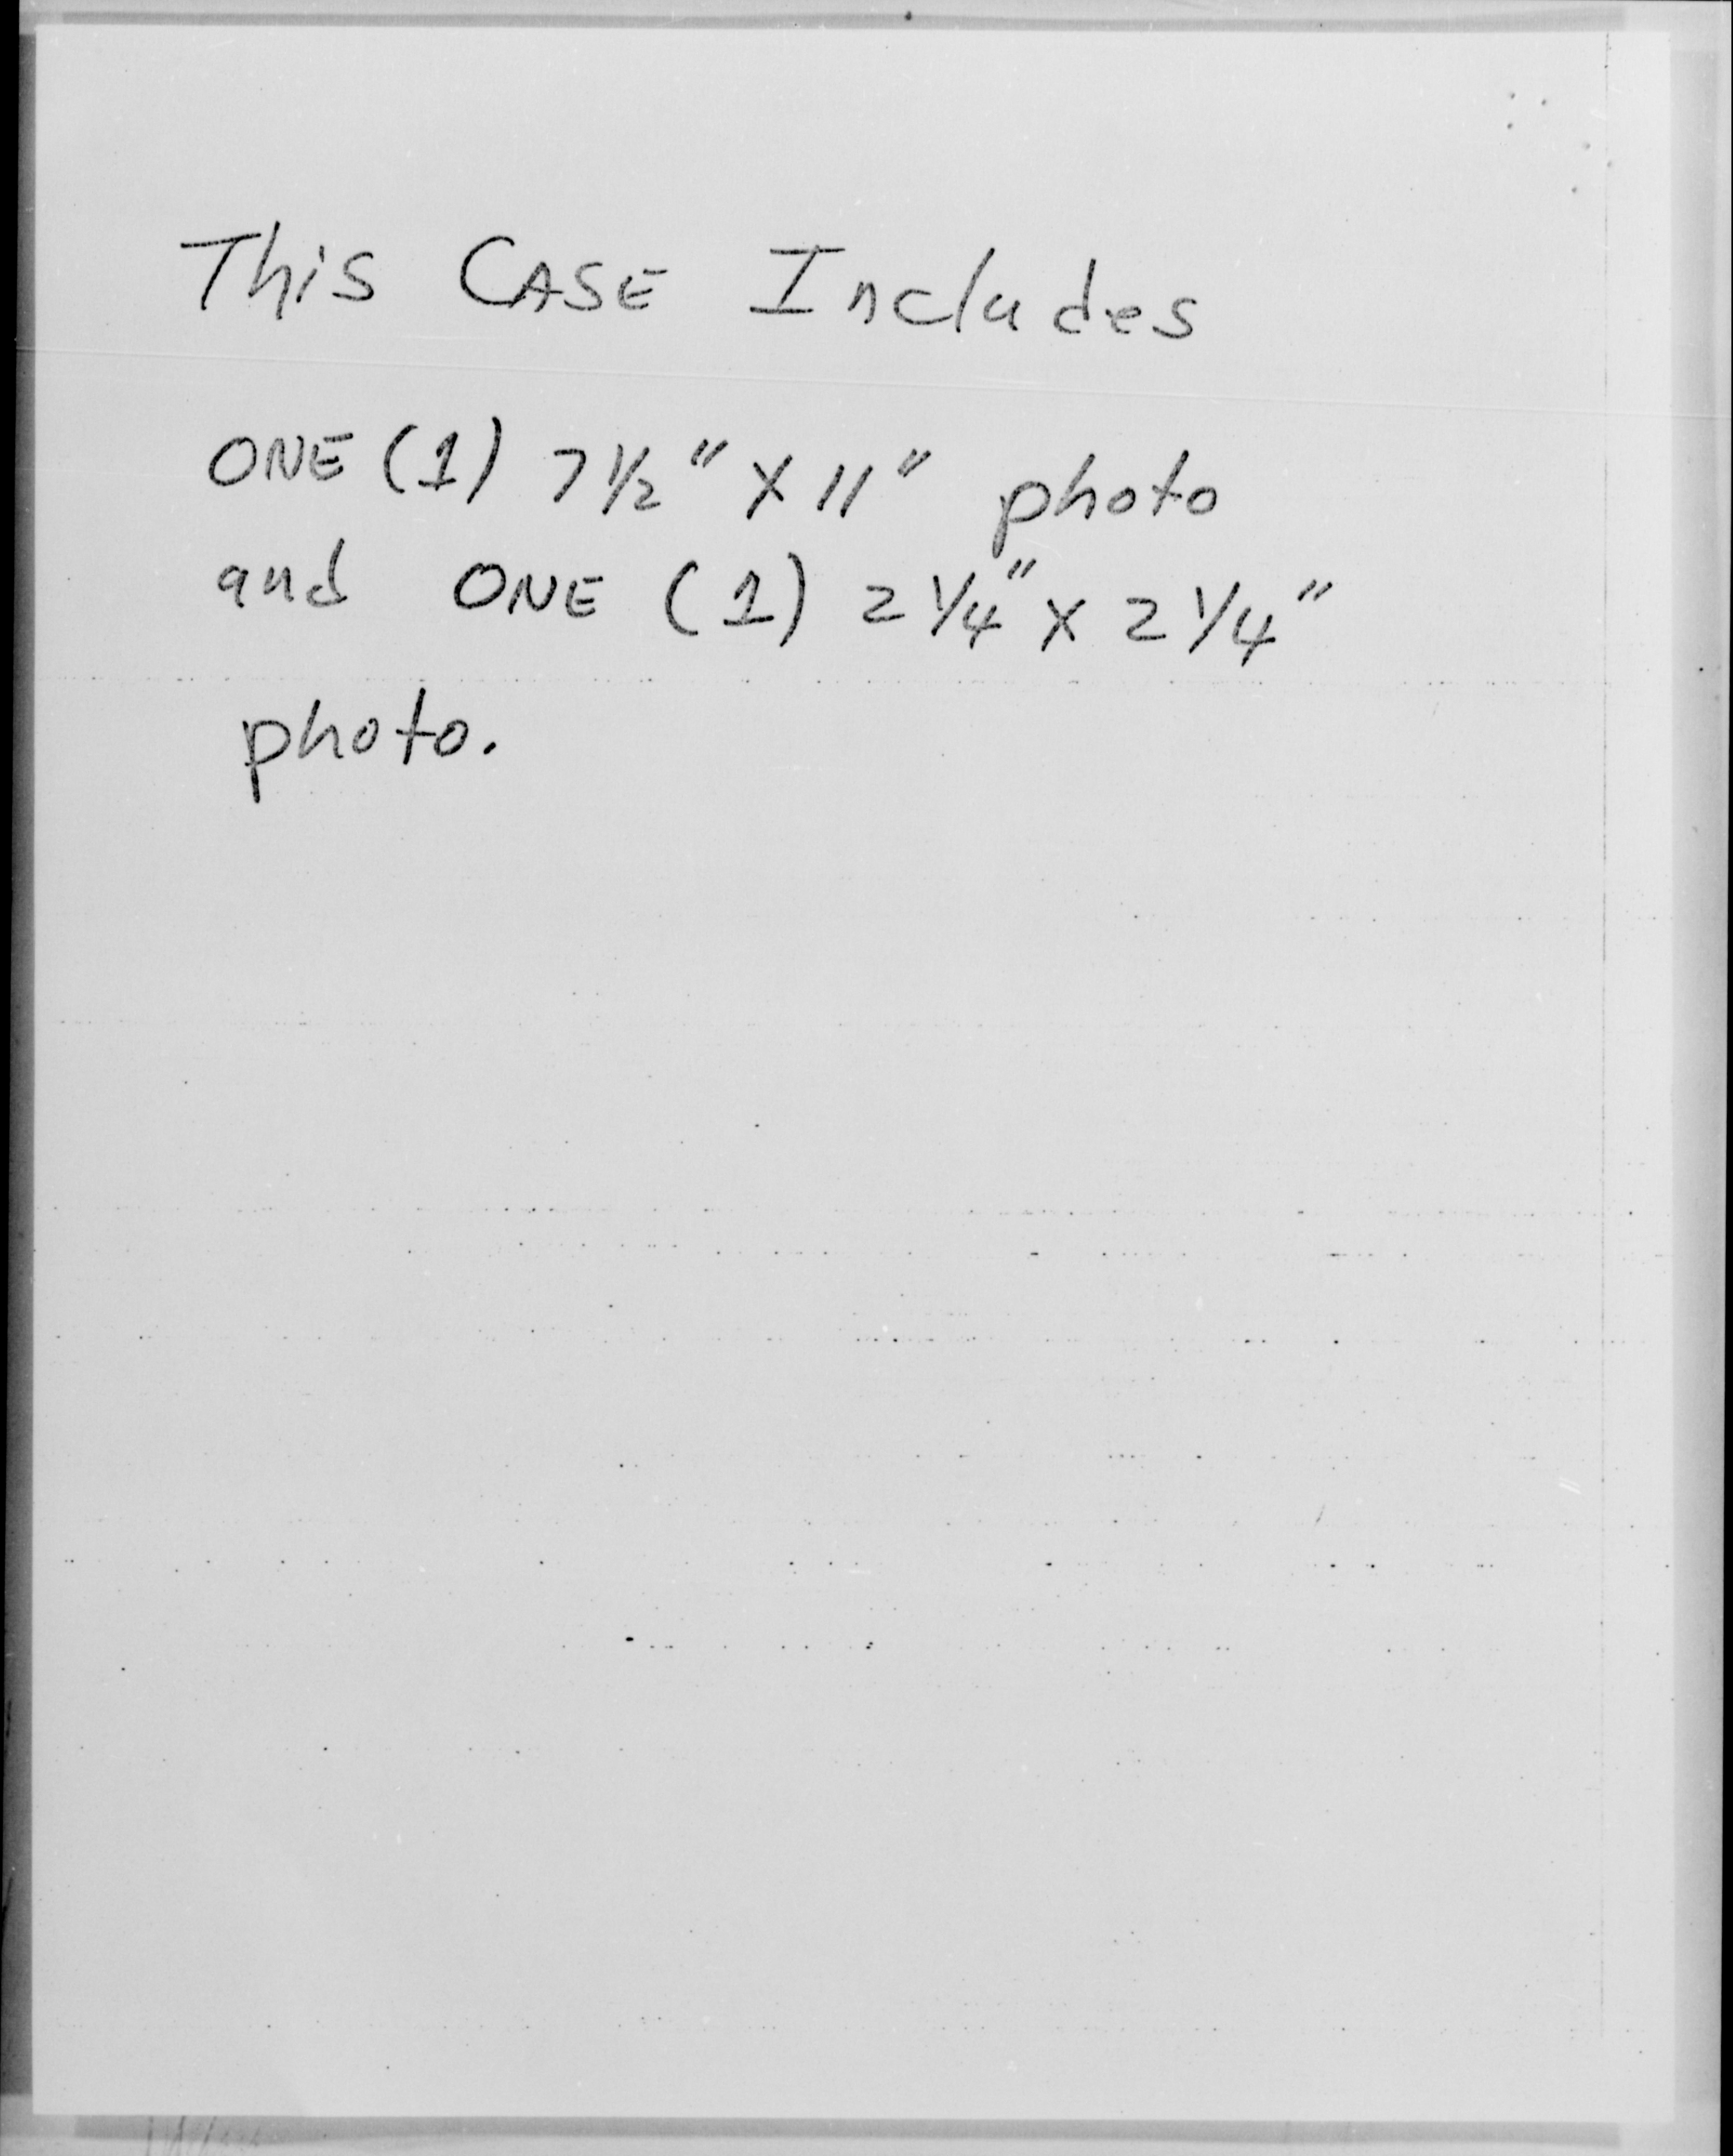 This CASE Includes
ONE (1) 7 1/2" X 11" photo
and ONE (1) 2 1/4" X 2 1/4"
photo.